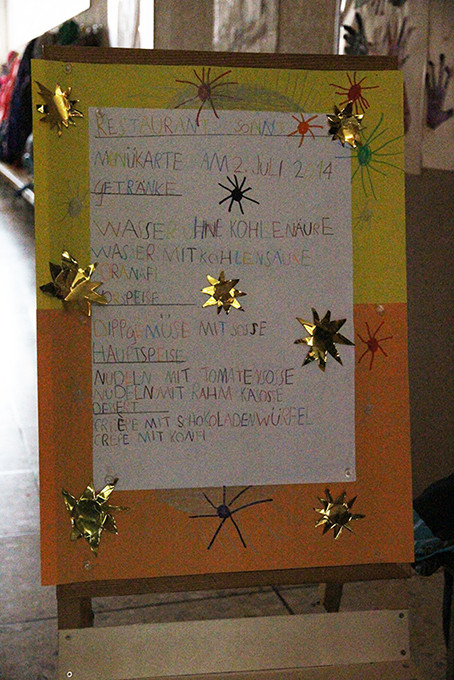 RESTAURANT SONN
MENÜKARTE AM 2. JULI 2014
GETRÄNKE
WASSER OHNE KOHLENÄURE
WASSER MIT KOHLENSÄURE
VORSPEISE
DIPPGEMÜSE MIT SOSSE
HAUPTSPEISE
NUDELN MIT TOMATENSOSSE
NUDELN MIT RAHM KÄSOSSE
DESERT
CREEPE MIT SCHOKOLADENWÜRFEL
CREPE MIT KONFI